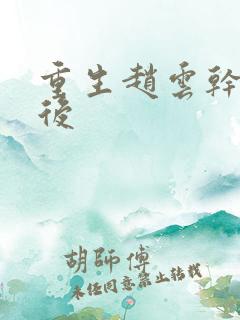 重生趙雲幹
後
胡師傅
未经同意禁止转载